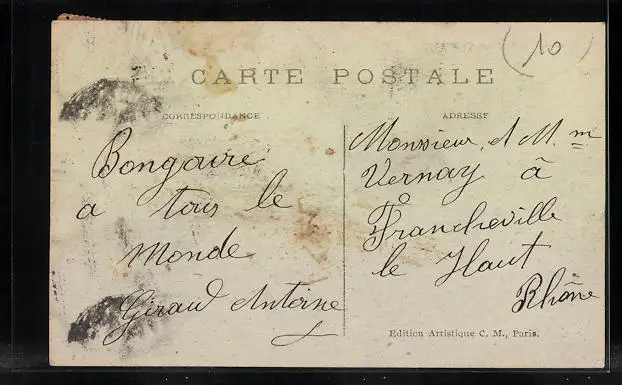 (10)
CARTE POSTALE
CORRESPONDANCE
Bongourre
a tous le
monde
Giraud Antoine
ADRESSE
Monsieur, et M. m
Vernay à
Francheville
le Haut
Rhône
Edition Artistique C. M., Paris.